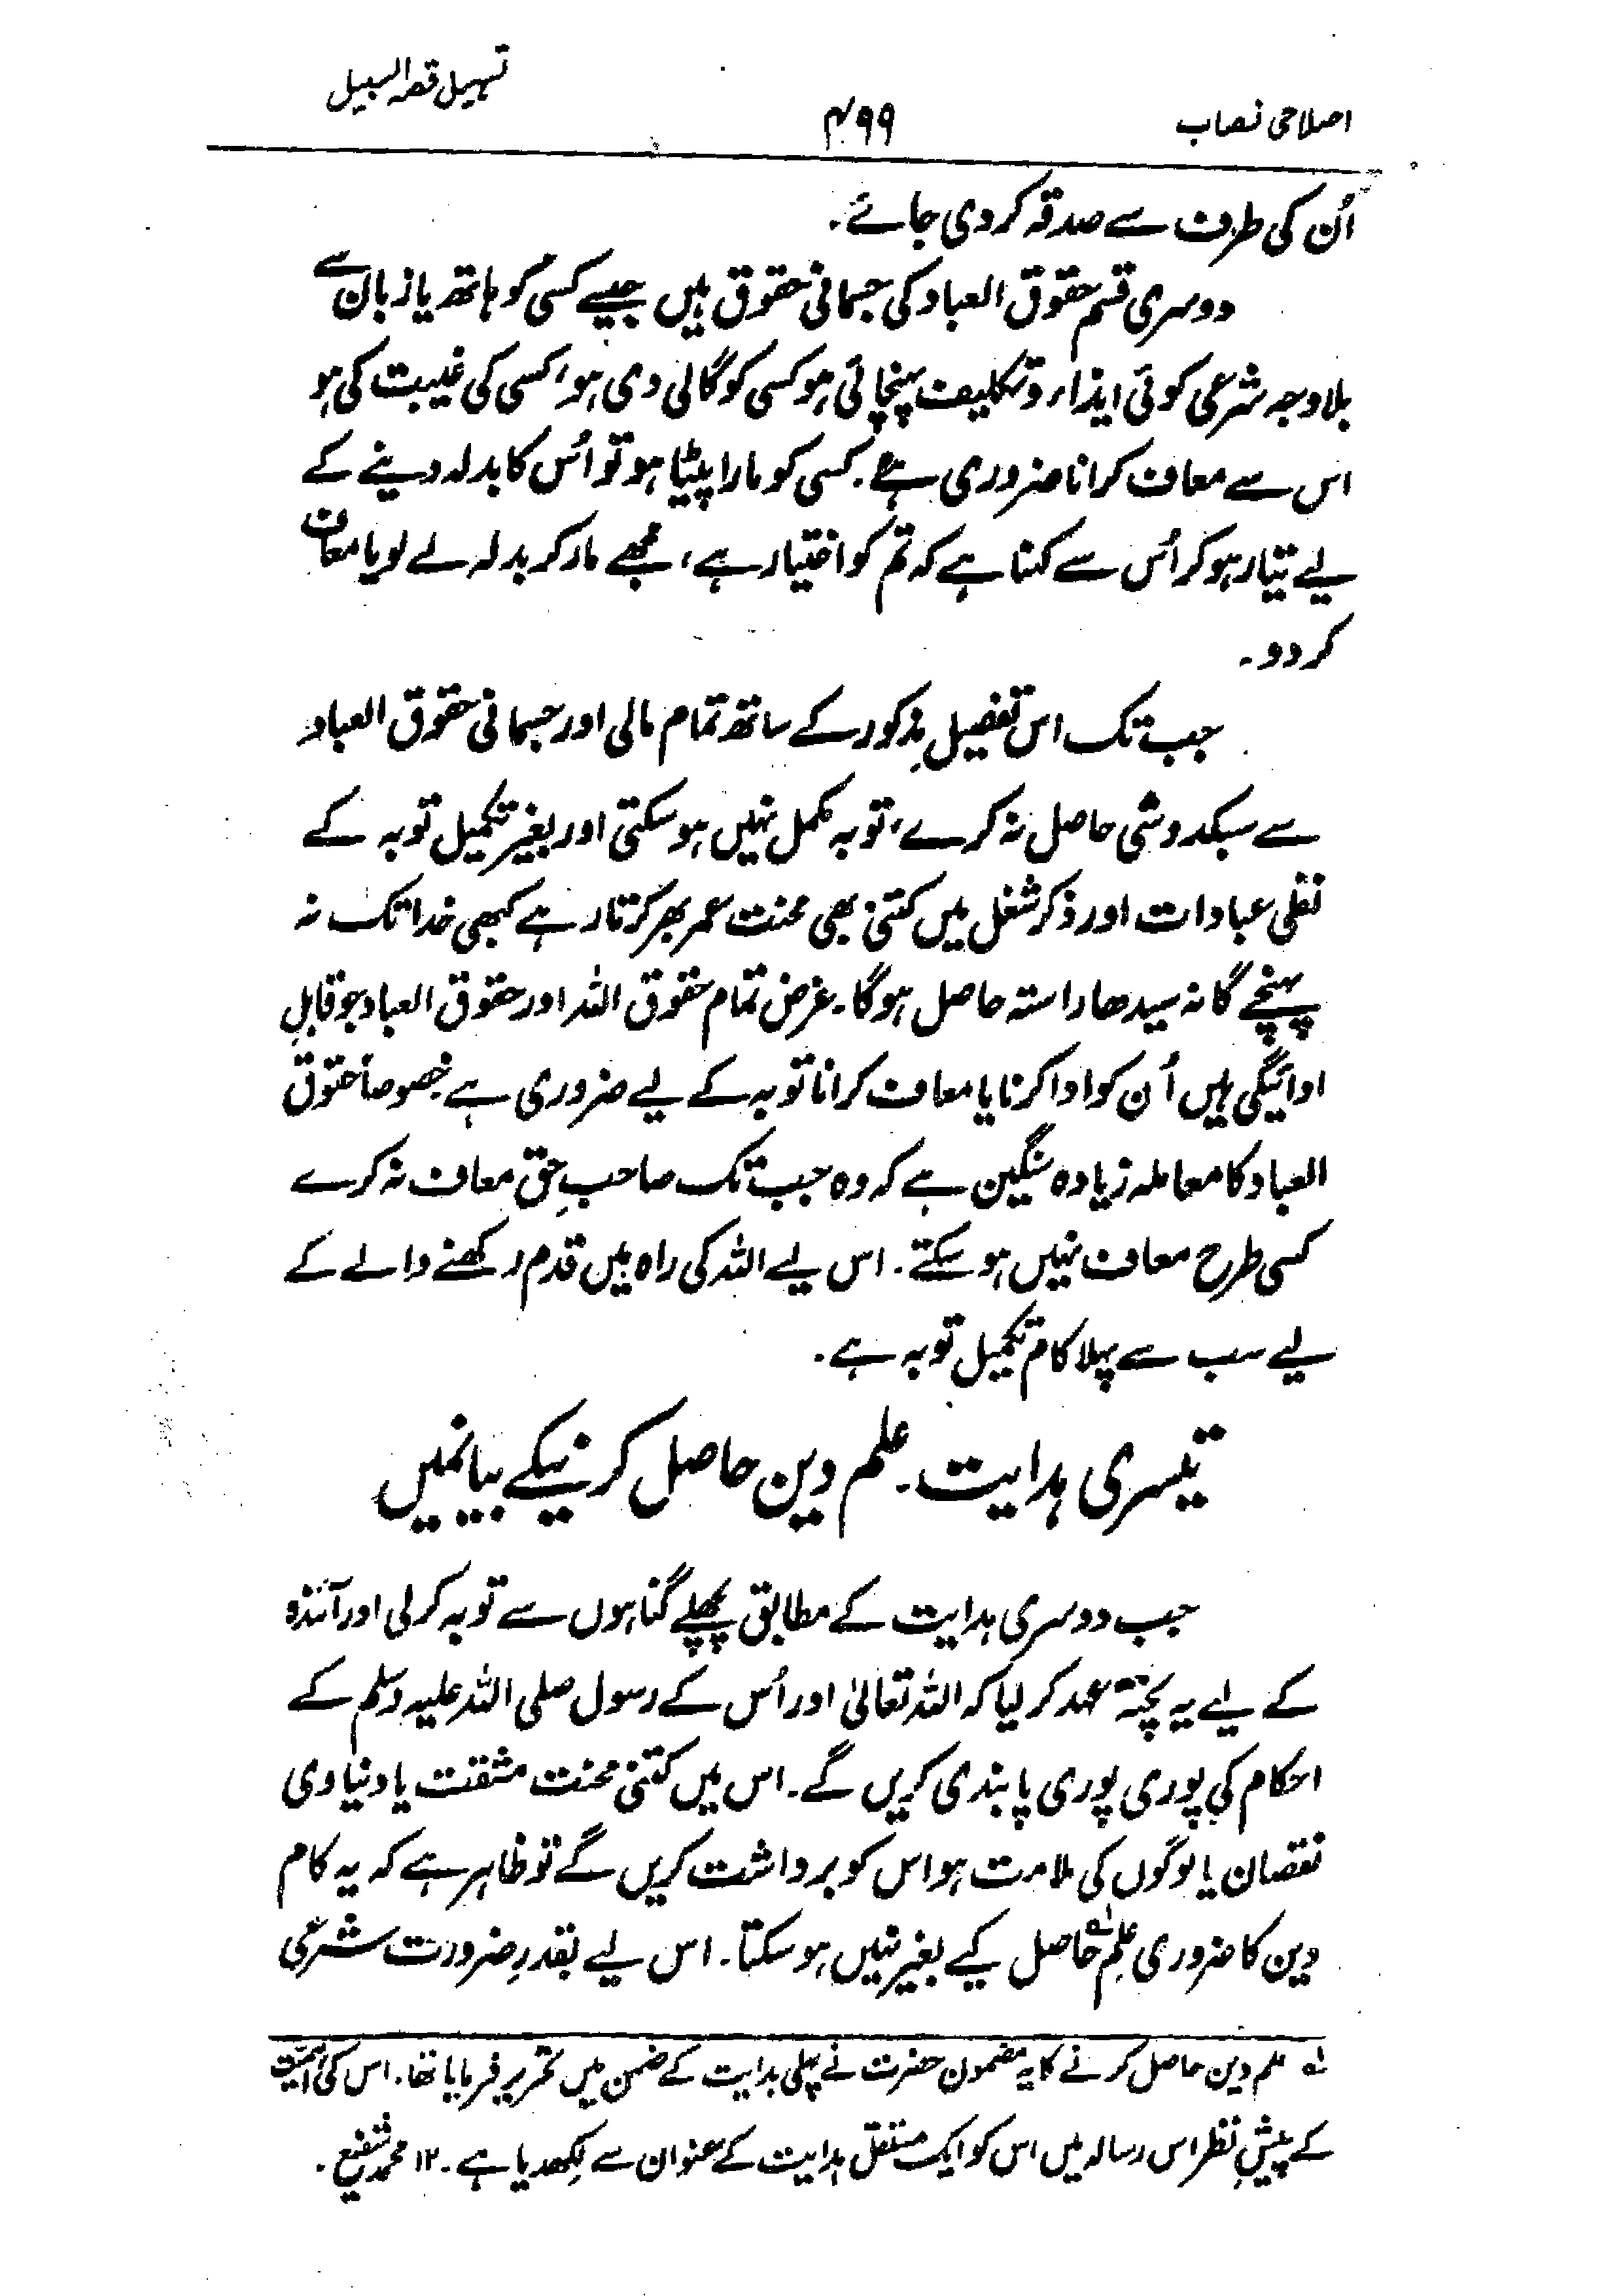 اصلاحی نصاب
۴۹۹
تسہیل قصد السبیل
اُن کی طرف سے صدقہ کر دی جائے۔
دوسری قسم حقوق العباد کی جسمانی حقوق ہیں جیسے کسی کو ہاتھ یا زبان سے
بلاوجہ شرعی کوئی ایذاء و تکلیف پہنچائی ہو کسی کو گالی دی ہو، کسی کی غیبت کی ہو
اس سے معاف کرانا ضروری ہے۔ کسی کو مارا پیٹا ہو تو اُس کا بدلہ دینے کے
لیے تیار ہو کر اُس سے کہنا ہے کہ تم کو اختیار ہے، مجھے مار کر بدلہ لے لو یا معاف
کر دو۔
جب تک اس تفصیل مذکور کے ساتھ تمام مالی اور جسمانی حقوق العباد
سے سبکدوشی حاصل نہ کرے، توبہ مکمل نہیں ہو سکتی اور بغیر تکمیل توبہ کے
نفلی عبادات اور ذکر شغل میں کتنی بھی محنت عمر بھر کرتا رہے کبھی خدا تک نہ
پہنچے گا نہ سیدھا راستہ حاصل ہوگا۔ غرض تمام حقوق اللہ اور حقوق العباد جو قابلِ
ادائیگی ہیں اُن کو ادا کرنا یا معاف کرانا توبہ کے لیے ضروری ہے خصوصاً حقوق
العباد کا معاملہ زیادہ سنگین ہے کہ وہ جب تک صاحبِ حق معاف نہ کرے
کسی طرح معاف نہیں ہو سکتے۔ اس لیے اللہ کی راہ میں قدم رکھنے والے کے
لیے سب سے پہلا کام تکمیل توبہ ہے۔
تیسری ہدایت۔ علم دین حاصل کرنیکے بیانمیں
جب دوسری ہدایت کے مطابق پچھلے گناہوں سے توبہ کر لی اور آئندہ
کے لیے یہ پختہ عہد کر لیا کہ اللہ تعالیٰ اور اُس کے رسول صلی اللہ علیہ وسلم کے
احکام کی پوری پوری پابندی کریں گے۔ اس میں کتنی محنت مشقت یا دنیاوی
نقصان یا لوگوں کی ملامت ہو اس کو برداشت کریں گے تو ظاہر ہے کہ یہ کام
دین کا ضروری علم؂۱ حاصل کیے بغیر نہیں ہو سکتا۔ اس لیے بقدرِ ضرورت شرعی
؂۱ علم دین حاصل کرنے کا یہ مضمون حضرت نے پہلی ہدایت کے ضمن میں تحریر فرمایا تھا۔ اس کی اہمیت
کے پیشِ نظر اس رسالہ میں اس کو ایک مستقل ہدایت کے عنوان سے لکھدیا ہے۔ ۱۲ محمد شفیع۔